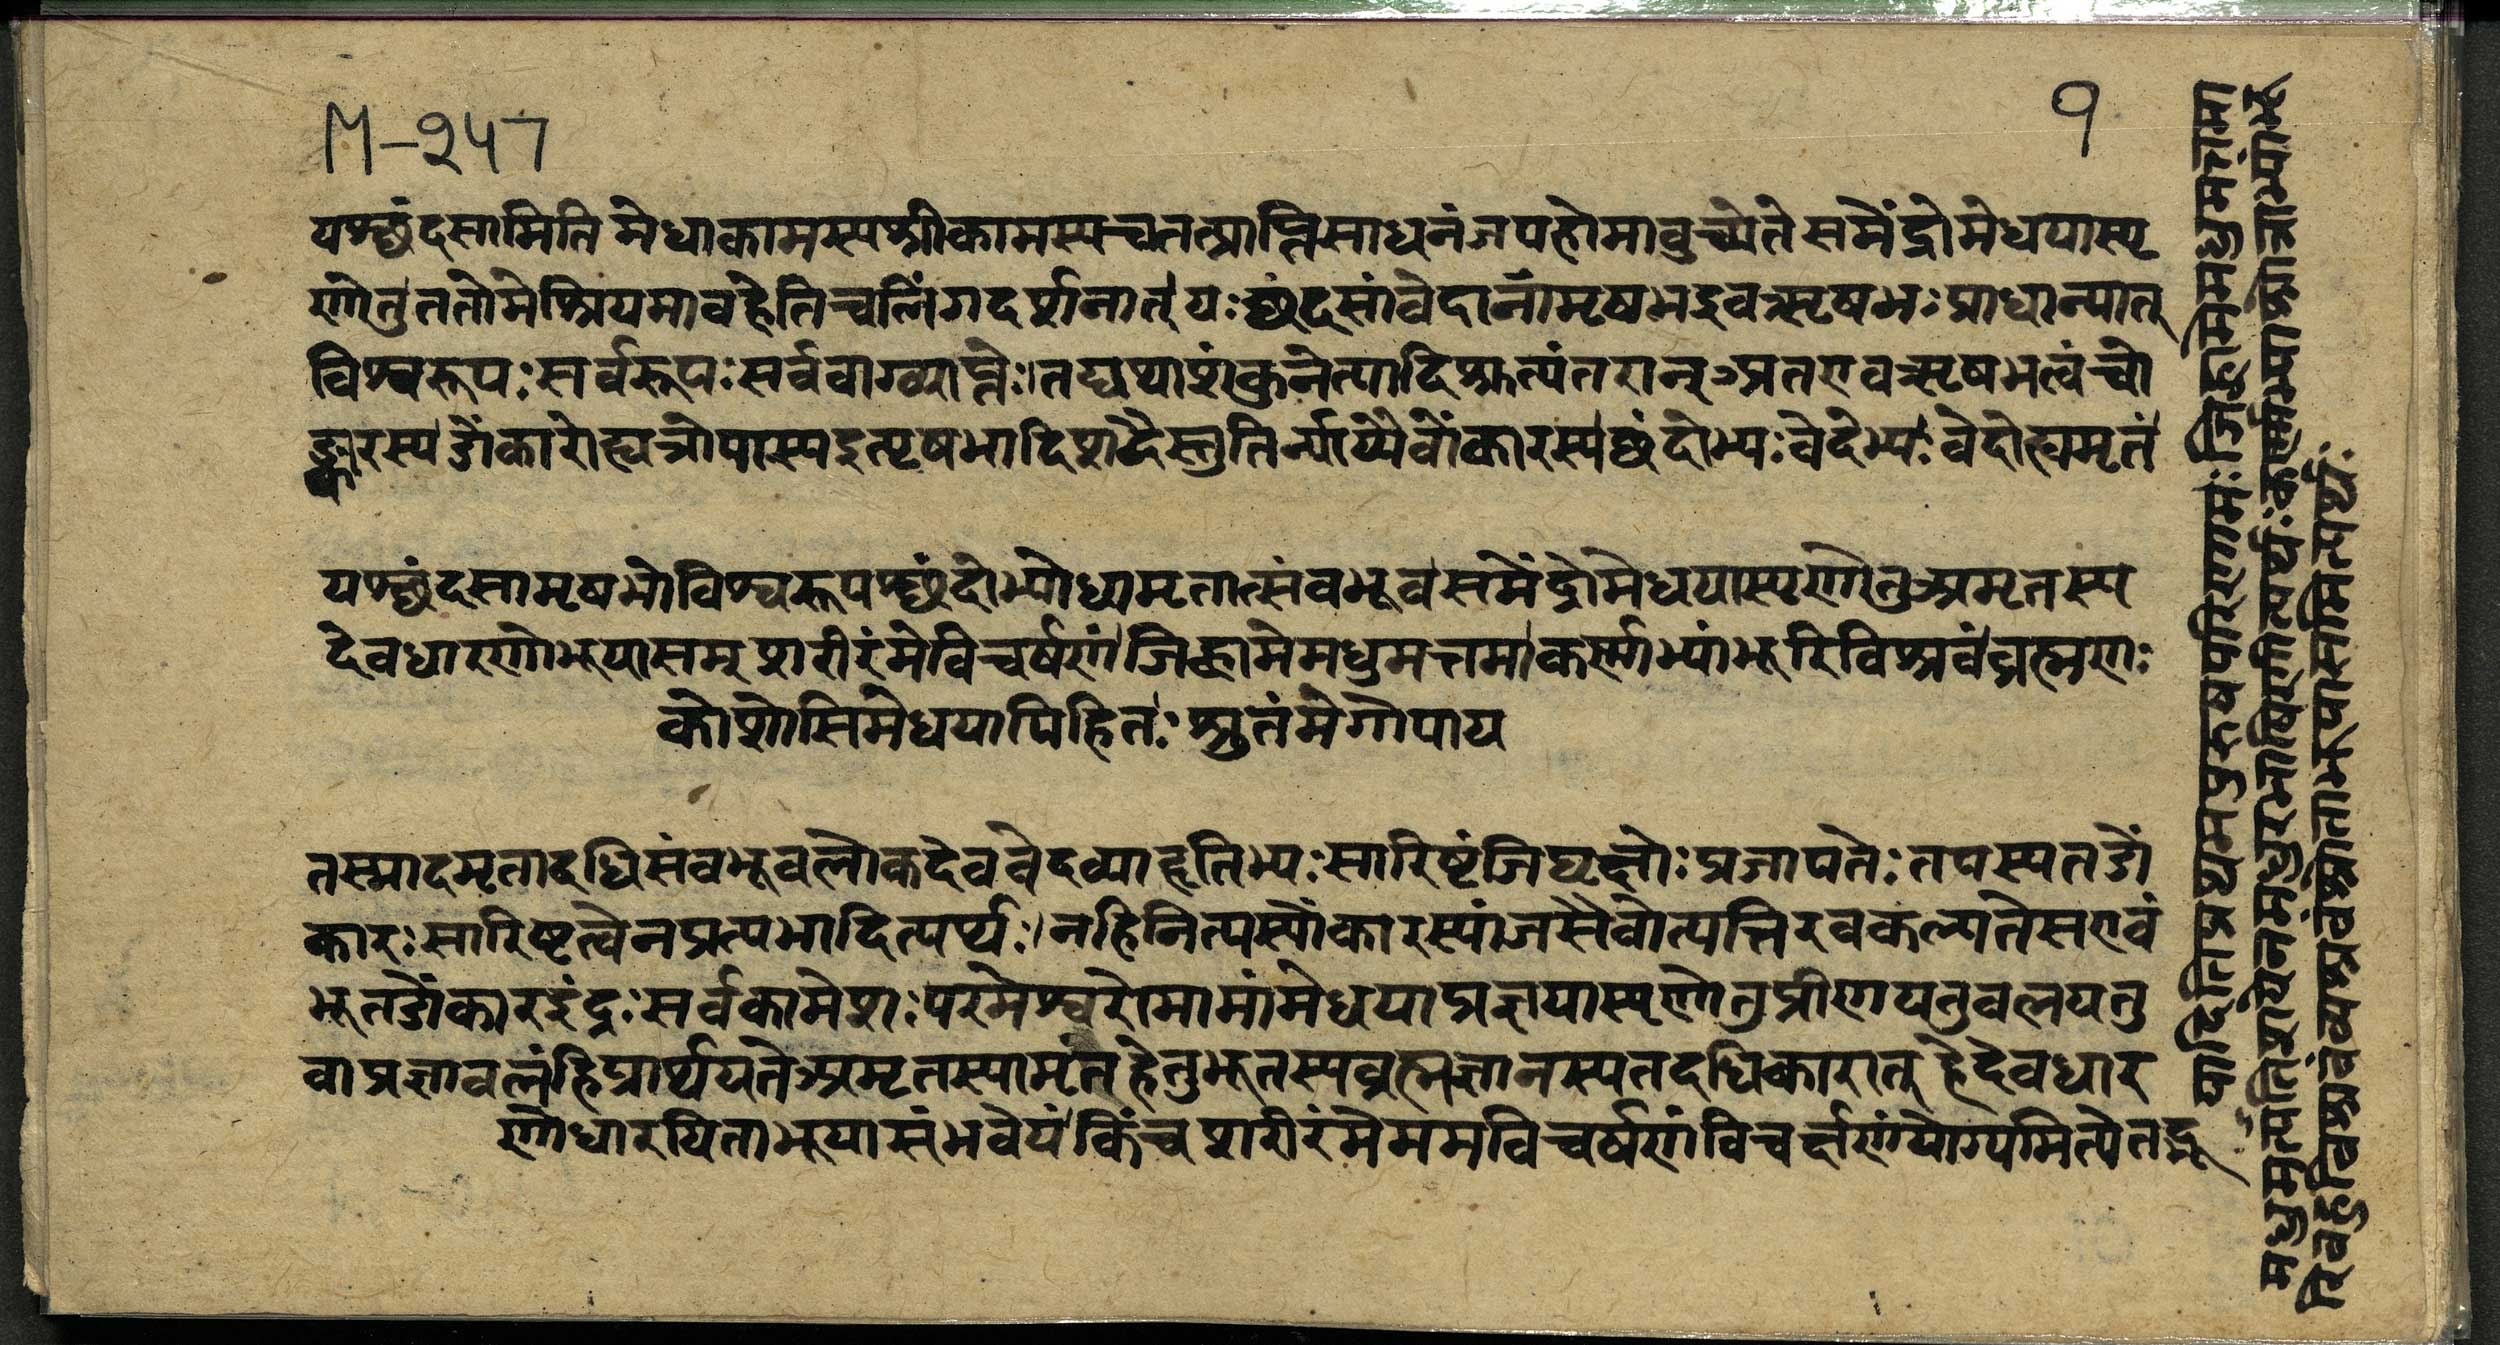 M-२५७
१
यश्छंदसामिति मेधाकामस्यश्रीकामस्यचतत्प्राप्तिसाधनंजपहोमावुच्येते समेंद्रोमेधयास्पृ
णोतु ततोमेश्रियमावहेतिचलिंगदर्शनात् यः छंदसांवेदानामृषभइवऋषभः प्राधान्यात्
विश्वरूपः सर्वरूपः सर्ववाग्व्याप्तेः। तद्यथाशंकुनेत्यादिश्रुत्यंतरात् अतएवऋषभत्वंचों
कारस्य ॐकारोह्यत्रोपास्यइत्यृषभादिशब्दैस्तुतिर्न्याय्यैवोंकारस्य छंदोभ्यः वेदेभ्यः वेदोह्यमृतं
यश्छंदसामृषभोविश्वरूपश्छंदोभ्योध्यमृतात्संबभूव समेंद्रोमेधयास्पृणोतु अमृतस्य
देवधारणोभूयासम् शरीरंमेविचर्षणं जिह्वामेमधुमत्तमा कर्णाभ्यांभूरिविश्रवं ब्रह्मणः
कोशोसिमेधयापिहितः श्रुतंमेगोपाय
तस्मादमृतादधिसंबभूव लोकदेववेदव्याहृतिभ्यः सारिष्टंजिघृक्षोः प्रजापतेः तपस्यतॐ
कारः सारिष्टत्वेनप्रत्यभादित्यर्थः। नहिनित्यस्योंकारस्यांजसैवोत्पत्तिरवकल्पते सएवं
भूतॐकारइंद्रः सर्वकामेशः परमेश्वरोमामांमेधयाप्रज्ञयास्पृणोतुप्रीणयतुबलयतु
वा प्रज्ञाबलंहिप्रार्थयते अमृतस्यामृतत्वहेतुभूतस्यब्रह्मज्ञानस्यतदधिकारात् हेदेवधार
णोधारयिताभूयासंभवेयं किंचशरीरंमेममविचर्षणंविचक्षणंयोग्यमित्येतद्भू
यादितिप्रथमपुरुषपरिणामः जिह्वामेमधुमत्तमा
मधुमत्यतिशयेनमधुरभाषिणीत्यर्थः कर्णाभ्यांश्रोत्राभ्यांभू
रिबहुविश्रवंव्यश्रवंश्रोताभूयासमित्यर्थः